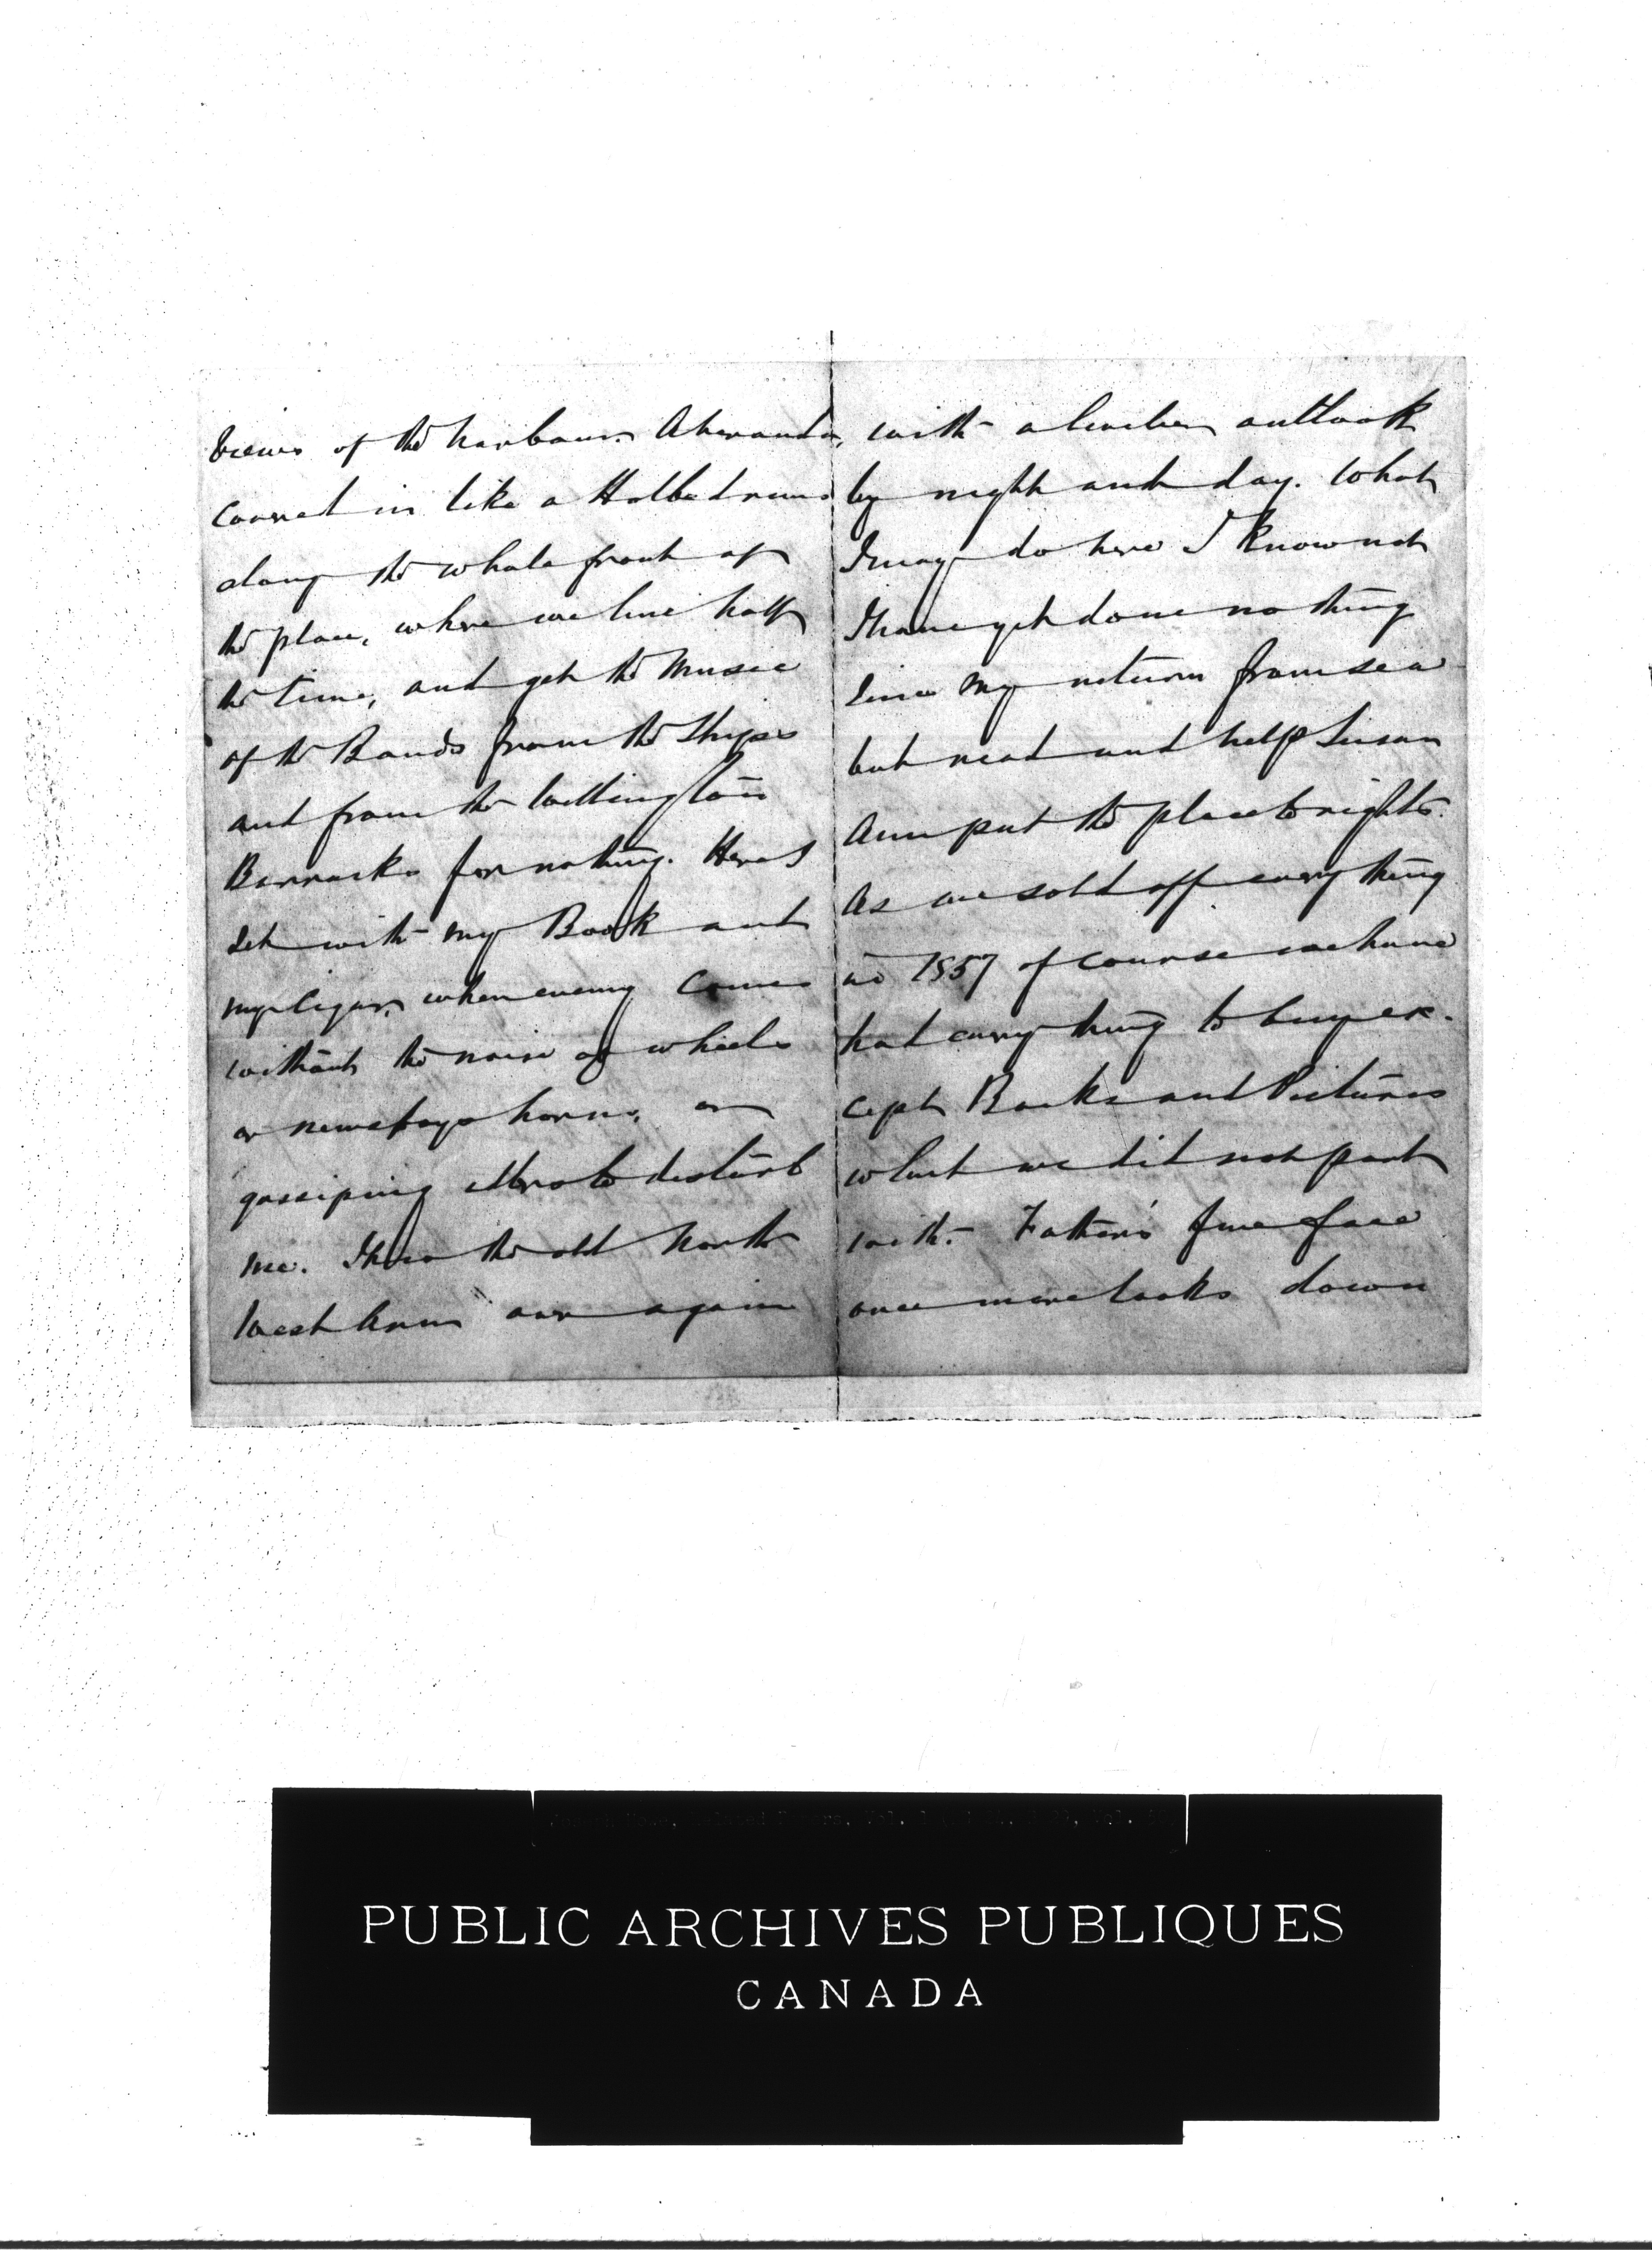 views of the harbour. A veranda,
covered in like a Hall runs
along the whole front of
the place, where we live half
the time, and get the Music
of the Bands from the Ships
and from the Wellington
Barracks for nothing. Here I
sit with my Book and
my Cigar, when evening comes
without the noise of wheels
or newsboys horns, or
gossiping to disturb
me. It is the old North
West Arm over again
with a livelier outlook
by night and day. What
I may do here I know not
I have yet done nothing
since my return from sea
but read and help Susan
Ann put the place to rights.
As we sold off every thing
in 1857 of course we have
had every thing to buy ex-
cept Books and Pictures
which we did not part
with. Father's fine face
once more looks down
PUBLIC ARCHIVES PUBLIQUES
CANADA